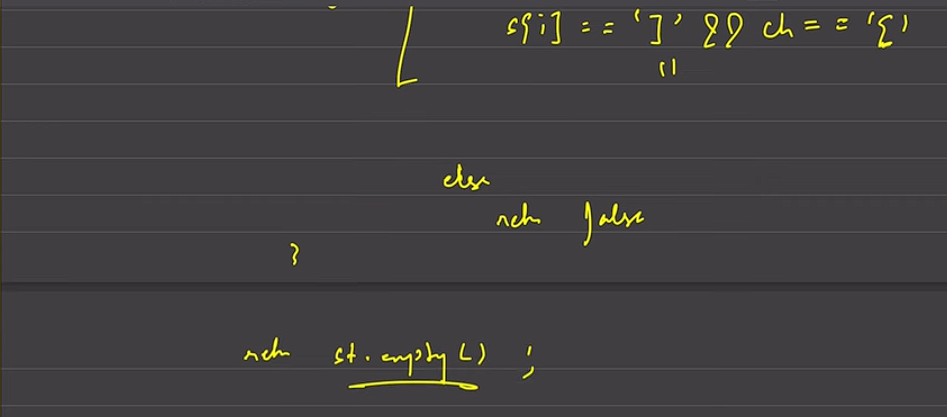 s[i] == ']' && ch == '['
||
else
retn false
}
retn st.empty() ;